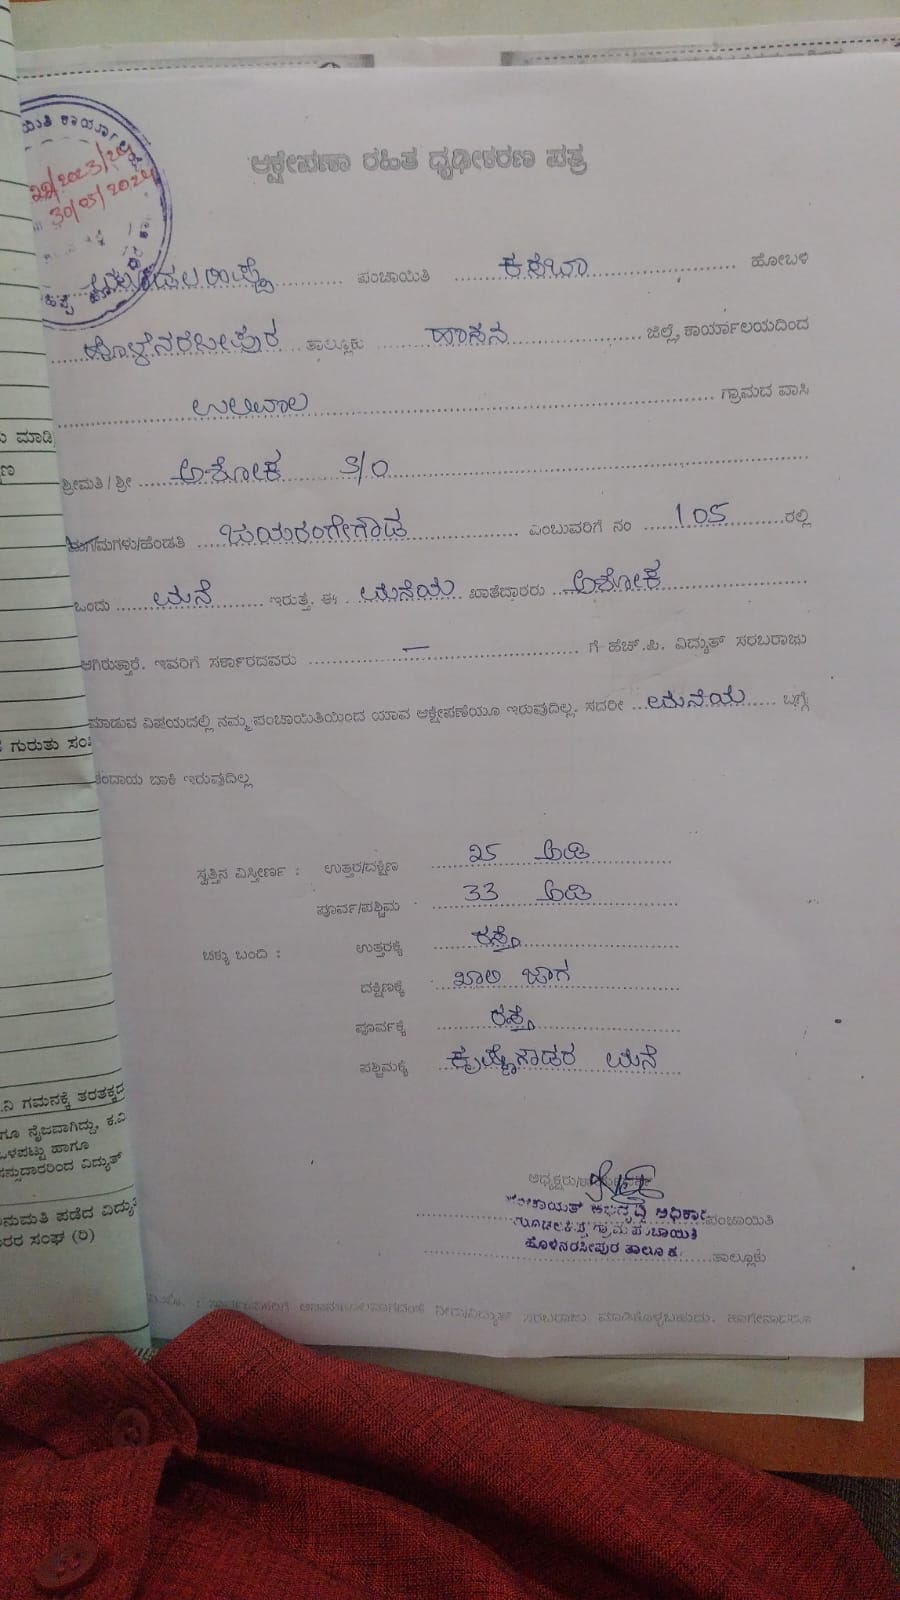 ಯಿತಿ ಕಾರ್ಯಾಲಯ
30/03/2024
ಆಕ್ಷೇಪಣಾ ರಹಿತ ಧೃಢೀಕರಣ ಪತ್ರ
ಪಂಚಾಯಿತಿ ಕಸಬಾ ಹೋಬಳಿ
ಹೊಳೆನರಸೀಪುರ ತಾಲ್ಲೂಕು ಹಾಸನ ಜಿಲ್ಲೆ, ಕಾರ್ಯಾಲಯದಿಂದ
ಉಲಿವಾಲ ಗ್ರಾಮದ ವಾಸಿ
ಶ್ರೀಮತಿ/ಶ್ರೀ ಅಶೋಕ S/O
ಮಗ/ಮಗಳು/ಹೆಂಡತಿ ಜಯರಂಗೇಗೌಡ ಎಂಬುವರಿಗೆ ನಂ 105 ರಲ್ಲಿ
ಒಂದು ಮನೆ ಇರುತ್ತೆ. ಈ ಮನೆಯ ಖಾತೆದಾರರು ಅಶೋಕ
ಆಗಿರುತ್ತಾರೆ. ಇವರಿಗೆ ಸರ್ಕಾರದವರು — ಗೆ ಹೆಚ್.ಪಿ. ವಿದ್ಯುತ್ ಸರಬರಾಜು
ಮಾಡುವ ವಿಷಯದಲ್ಲಿ ನಮ್ಮ ಪಂಚಾಯಿತಿಯಿಂದ ಯಾವ ಆಕ್ಷೇಪಣೆಯೂ ಇರುವುದಿಲ್ಲ. ಸದರೀ ಮನೆಯ ಬಗ್ಗೆ
ಕಂದಾಯ ಬಾಕಿ ಇರುವುದಿಲ್ಲ
ಸ್ವತ್ತಿನ ವಿಸ್ತೀರ್ಣ : ಉತ್ತರ/ದಕ್ಷಿಣ 25 ಅಡಿ
ಪೂರ್ವ/ಪಶ್ಚಿಮ 33 ಅಡಿ
ಚಕ್ಕು ಬಂದಿ : ಉತ್ತರಕ್ಕೆ ರಸ್ತೆ
ದಕ್ಷಿಣಕ್ಕೆ ಖಾಲಿ ಜಾಗ
ಪೂರ್ವಕ್ಕೆ ರಸ್ತೆ
ಪಶ್ಚಿಮಕ್ಕೆ ಕೃಷ್ಣೇಗೌಡರ ಮನೆ
ಅಧ್ಯಕ್ಷರು/
ಪಂಚಾಯತ್ ಅಭಿವೃದ್ಧಿ ಅಧಿಕಾರಿ ಪಂಚಾಯಿತಿ
ಗ್ರಾಮ ಪಂಚಾಯಿತಿ
ಹೊಳೆನರಸೀಪುರ ತಾಲೂಕು ತಾಲ್ಲೂಕು
ಸರಬರಾಜು ಮಾಡಿಕೊಳ್ಳಬಹುದು.
ಮಾಡಿ
ಗುರುತು
ಗಮನಕ್ಕೆ ತರತಕ್ಕದ್ದು
ನೈಜವಾಗಿದ್ದು, ಕ.ವಿ
ಒಳಪಟ್ಟು ಹಾಗೂ
ವಿದ್ಯುತ್
ಪಡೆದ ವಿದ್ಯು
ಸಂಘ (ರಿ)